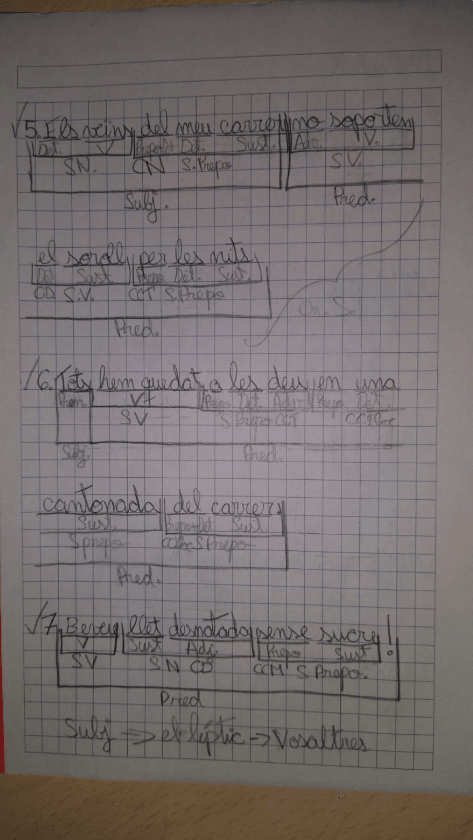 5. Els veins del meu carrer no soporten
Det. V Prepo+Det Det. Sust. Adv. V.
SN. CN S.Prepo S.V.
Subj. Pred.
el soroll per les nits
Det Sust Prepo Det. Sust.
CD S.V. CCT S Prepo
Pred.
6. Tots hem quedat a les deu en una
V Prepo Det Prepo Det.
SV S Prepo CCT
Subj. Pred.
cantonada del carrer
Sust. Prepo+Det Sust
S prepo S Prepo
Pred.
7. Beveu llet desnatada sense sucre!
V Sust Adj. Prepo Sust
SV S N CD CCM S Prepo.
Pred
Subj => el·líptic -> Vosaltres